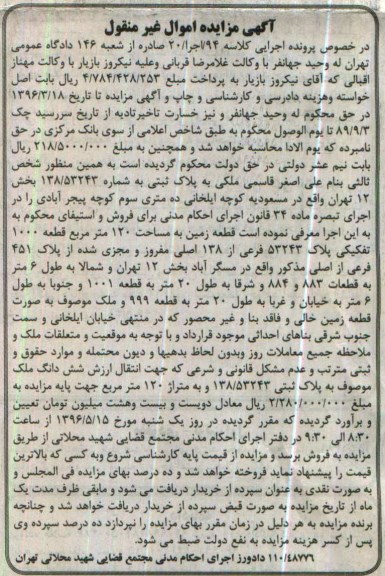 آگهی مزایده اموال غیر منقول
در خصوص پرونده اجرایی کلاسه ۹۴/اجرا/۲۰ صادره از شعبه ۱۴۶ دادگاه عمومی
تهران له وحید جهانفر با وکالت غلامرضا قربانی وعلیه نیکروز بازیار با وکالت مهناز
اقبالی که آقای نیکروز بازیار به پرداخت مبلغ ۴/۷۸۴/۴۲۸/۲۵۳ ریال بابت اصل
خواسته وهزینه دادرسی و کارشناسی و چاپ و آگهی مزایده تا تاریخ ۱۳۹۶/۳/۱۸
در حق محکوم له وحید جهانفر و نیز خسارت تاخیرتادیه از تاریخ سررسید چک
۸۹/۹/۳ تا یوم الوصول محکوم به طبق شاخص اعلامی از سوی بانک مرکزی در حق
نامبرده که یوم الادا محاسبه خواهد شد و همچنین به مبلغ ۲۱۸/۵۰۰۰/۰۰۰ ریال
بابت نیم عشر دولتی در حق دولت محکوم گردیده است به همین منظور شخص
ثالثی بنام علی اصغر قاسمی ملکی به پلاک ثبتی به شماره ۱۳۸/۵۳۲۴۳ بخش
۱۲ تهران واقع در مسعودیه کوچه ایلخانی ده متری سوم کوچه پیجر آبادی را در
اجرای تبصره ماده ۳۴ قانون اجرای احکام مدنی برای فروش و استیفای محکوم به
به این اجرا معرفی نموده است قطعه زمین به مساحت ۱۲۰ متر مربع قطعه ۱۰۰۰
تفکیکی پلاک ۵۳۲۴۳ فرعی از ۱۳۸ اصلی مفروز و مجزی شده از پلاک ۴۵۱
فرعی از اصلی مذکور واقع در مسگر آباد بخش ۱۲ تهران و شمالا به طول ۶ متر
به قطعات ۸۸۳ و ۸۸۴ و شرقا به طول ۲۰ متر به قطعه ۱۰۰۱ و جنوبا به طول
۶ متر به خیابان و غربا به طول ۲۰ متر به قطعه ۹۹۹ و ملک موصوف به صورت
قطعه زمین خالی و فاقد بنا و غیر محصور که در منتهی خیابان ایلخانی و سمت
جنوب شرقی بناهای احداثی موجود قرارداد و با توجه به موقعیت و متعلقات ملک و
ملاحظه جمیع معاملات روز وبدون لحاظ بدهیها و دیون محتمله و موارد حقوق و
ثبتی مترتب و عدم مشکل قانونی و شرعی که جهت انتقال ارزش شش دانگ ملک
موصوف به پلاک ثبتی ۱۳۸/۵۳۲۴۳ و به متراژ ۱۲۰ متر مربع جهت پایه مزایده به
مبلغ ۲/۲۸۰/۰۰۰/۰۰۰ ریال معادل دویست و بیست وهشت میلیون تومان تعیین
و برآورد گردیده که مقرر گردیده در روز یک شنبه مورخ ۱۳۹۶/۵/۱۵ از ساعت
۸:۳۰ الی ۹:۳۰ در دفتر اجرای احکام مدنی مجتمع قضایی شهید محلاتی از طریق
مزایده به فروش برسد و مزایده از قیمت پایه کارشناسی شروع وبه کسی که بالاترین
قیمت را پیشنهاد نماید فروخته خواهد شد و ده درصد بهای مزایده فی المجلس و
به صورت نقدی به عنوان سپرده از خریدار دریافت می شود و مابقی ظرف مدت یک
ماه از تاریخ مزایده به صورت قبض سپرده از خریدار دریافت خواهد شد و چنانچه
برنده مزایده به هر دلیل در زمان مقرر بهای مزایده را نپردازد ده درصد سپرده وی
پس از کسر هزینه مزایده به نفع دولت ضبط می شود.
۱۱۰/۴۸۷۷۶ دادورز اجرای احکام مدنی مجتمع قضایی شهید محلاتی تهران